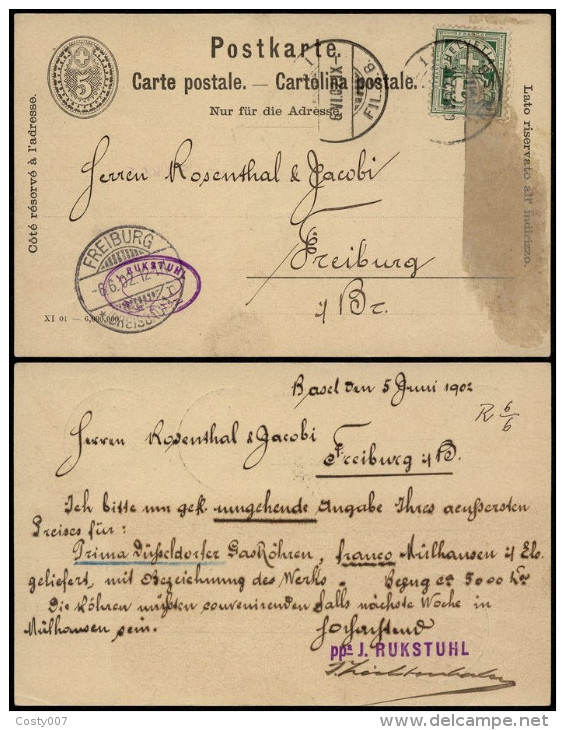 Postkarte.
Carte postale. — Cartolina postale.
Nur für die Adresse.
Côté réservé à l'adresse.
Lato riservato all' indirizzo.
5
HELVETIA
FRANCO
Herren Rosenthal & Jacobi
Freiburg
i/Br.
FREIBURG
-6.6.02.12-
BREISGAU
RUKSTUHL
XI 01 — 6,000,000
Basel den 5 Juni 1902
R 6/6
Herren Rosenthal & Jacobi
Freiburg i/B.
Ich bitte um gefl. umgehende Angabe Ihres aeussersten
Preises für:
Prima Düsseldorfer Gasröhren, franco Mülhausen i/ Els.
geliefert, mit Bezeichnung des Werks. Bezug ca 5000 Ko
Die Röhren müssten convenirenden falls nächste Woche in
Mülhausen sein. Hochachtend
ppa J. RUKSTUHL
Costy007
delcampe.net